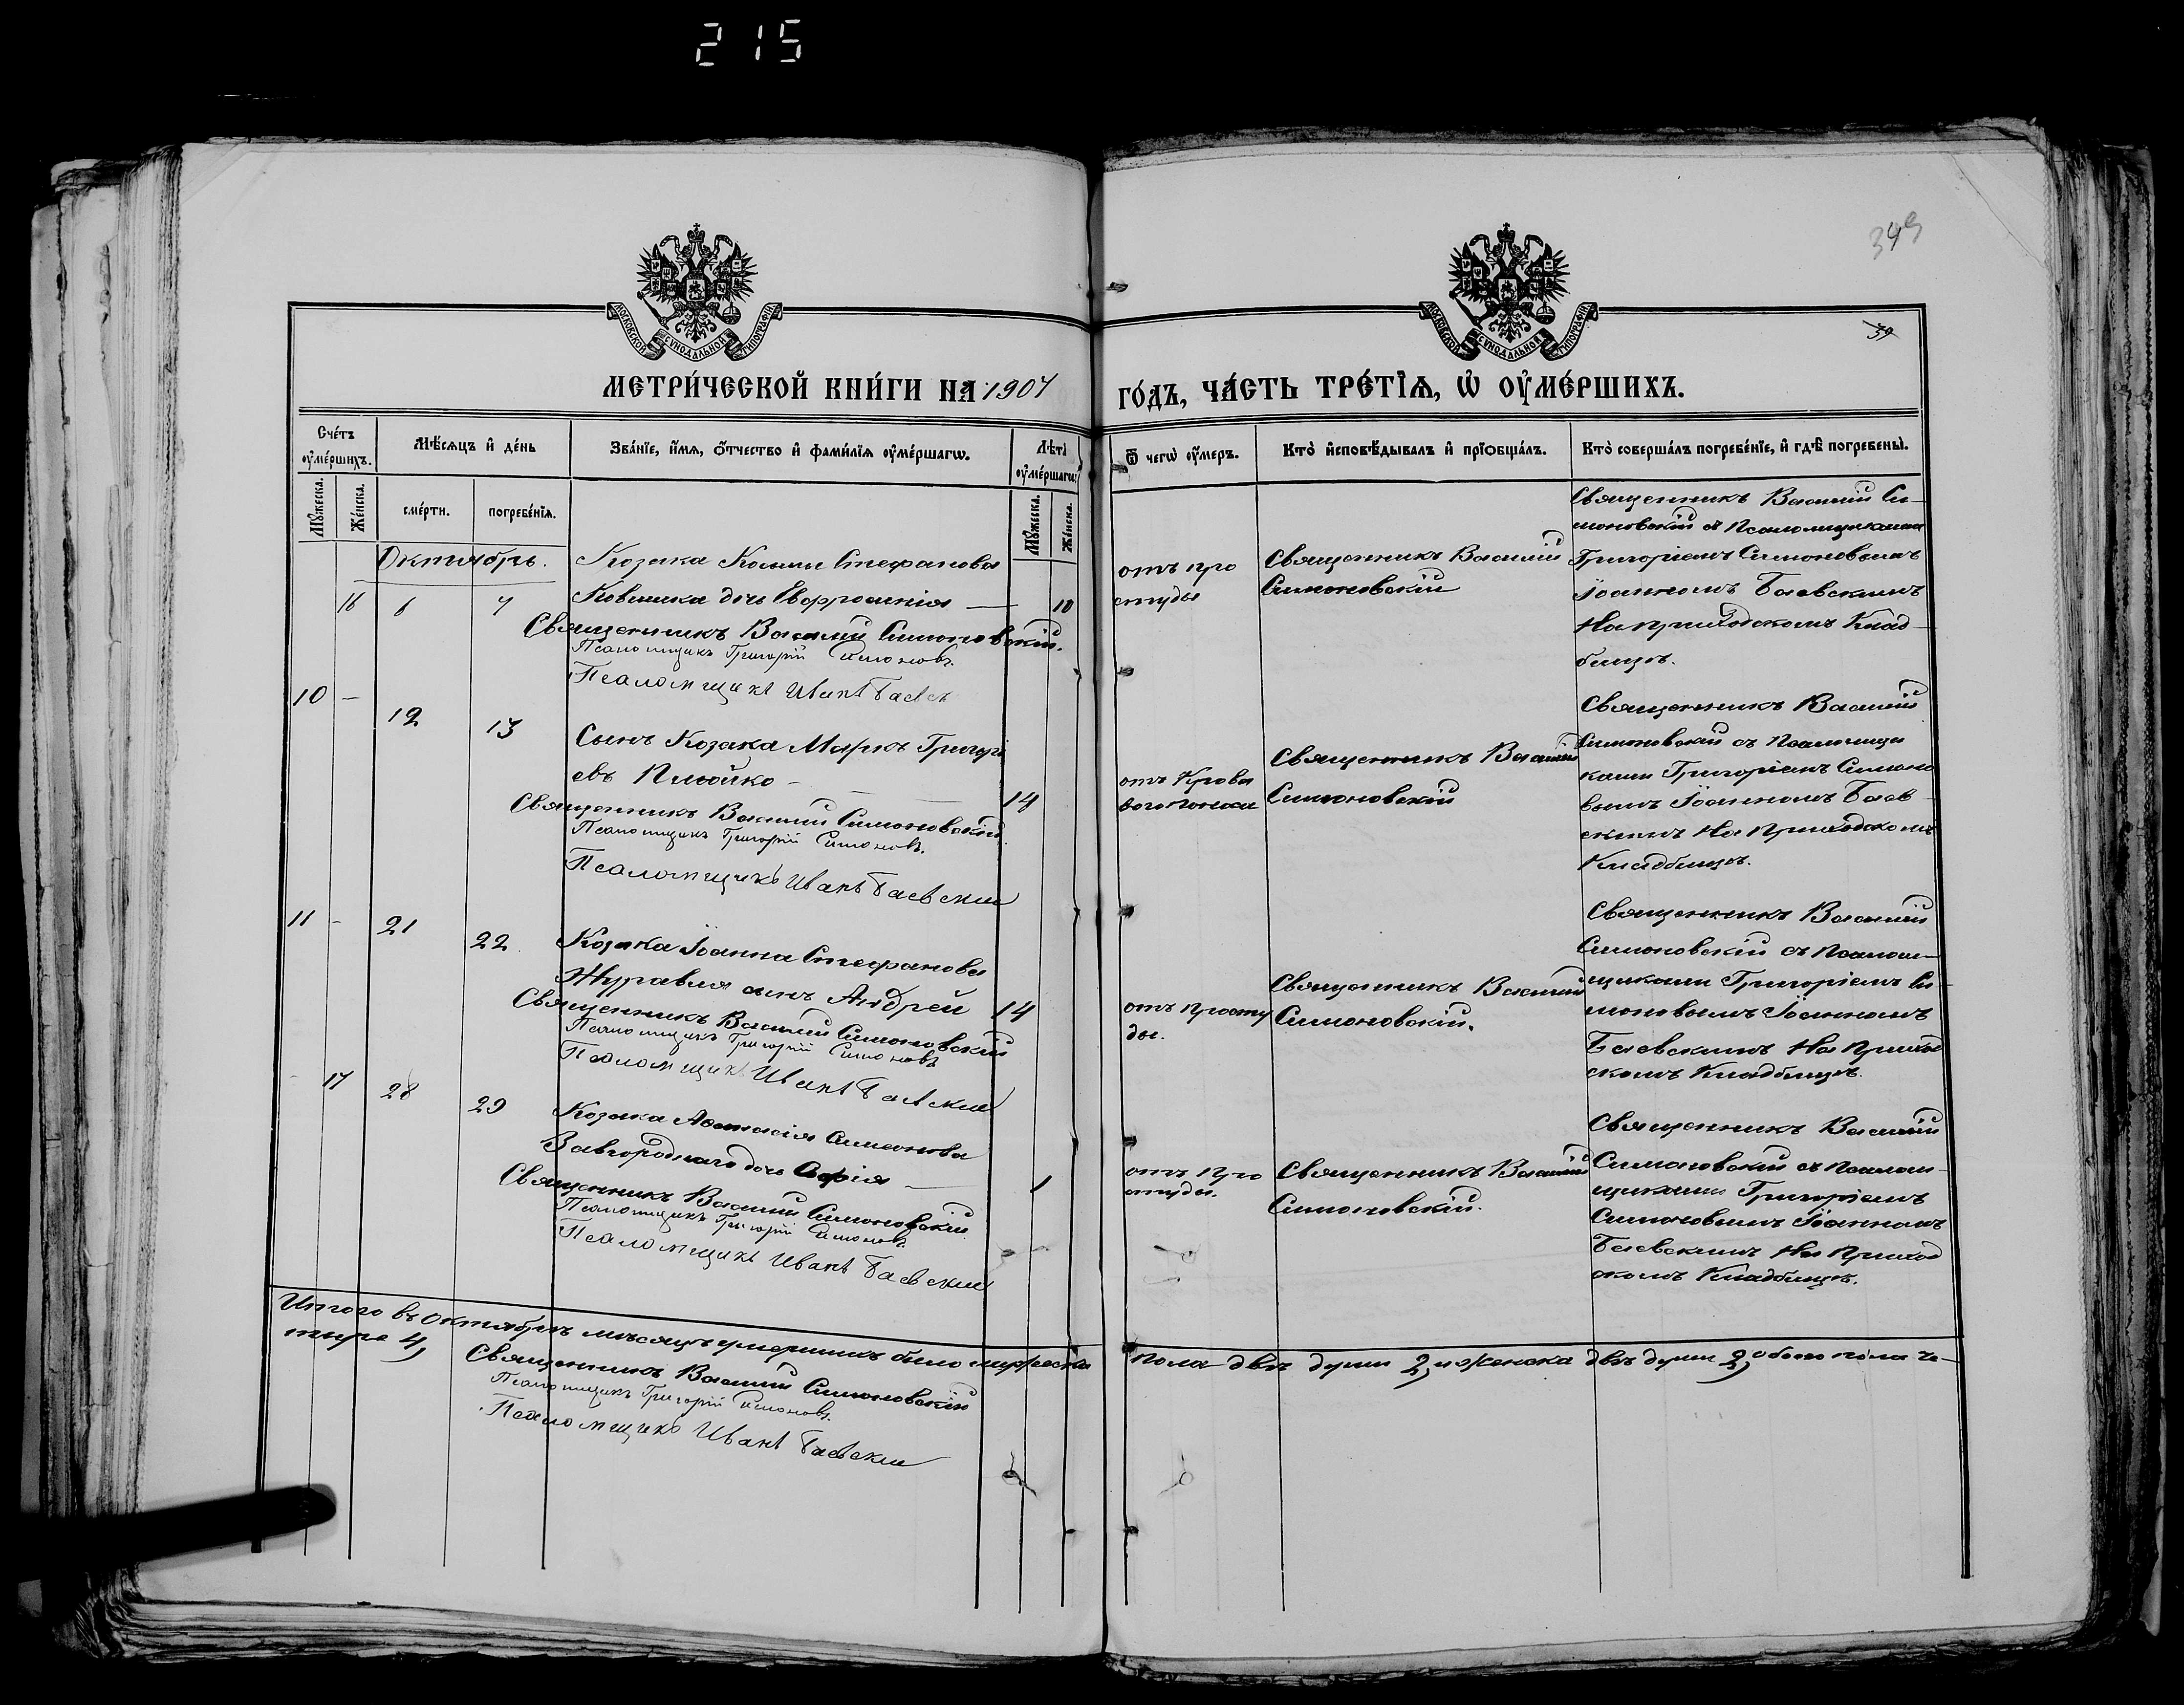 215
349
39
МОСКОВСКОЙ СѴНОДАЛЬНОЙ ТИПОГРАФІИ
МОСКОВСКОЙ СѴНОДАЛЬНОЙ ТИПОГРАФІИ
МЕТРИ́ЧЕСКОЙ КНИ́ГИ НА 1907 ГО́ДЪ, ЧА́СТЬ ТРЕ́ТІѦ, Ѡ҆ ОУ҆МЕ́РШИХЪ.
Сче́тъ оу҆ме́ршихъ.
Мѣ́сѧцъ и҆ де́нь
Зва́нїе, и҆́мѧ, ѻ҆́тчество и҆ фами́лїѧ оу҆ме́ршагѡ.
Лѣ́та оу҆ме́ршагѡ.
Ѿ чегѡ̀ оу҆́меръ.
Кто̀ и҆сповѣ́дывалъ и҆ прїѻбща́лъ.
Кто̀ соверша́лъ погребе́нїе, и҆ гдѣ̀ погребены̀.
Мꙋ́жеска.
Же́нска.
сме́рти.
погребе́нїѧ.
Мꙋ́жеска.
Же́нска.
Октябрь.
16 6 7
Козака Космы Стефанова
Ковшика дочь Евфросинія — 10
Священникъ Василій Симоновскій.
Псаломщикъ Григорій Симоновъ.
Псаломщикъ Иванъ Баевск
отъ про
студы
Священникъ Василій
Симоновскій
Священникъ Василій Си-
моновскій съ Псаломщиками
Григоріемъ Симоновымъ
Іоанномъ Баевскимъ
На приходскомъ Клад-
бищѣ.
10 — 12 13
Сынъ Козака Маркъ Григорі
евъ Плюйко — 14
Священникъ Василій Симоновскій
Псаломщикъ Григорій Симоновъ.
Псаломщикъ Иванъ Баевскій
отъ Крова
ваго поноса
Священникъ Василій
Симоновскій
Священникъ Василій
Симоновскій съ Псаломщи
ками Григоріемъ Симоно
вымъ Іоанномъ Баев-
скимъ На Приходскомъ
Кладбищѣ.
11 - 21 22
Козака Іоанна Стефанова
Журавля сынъ Андрей 14
Священникъ Василій Симоновскій
Псаломщикъ Григорій Симоновъ
Псаломщикъ Иванъ Баевскій
отъ просту
ды.
Священникъ Василій
Симоновскій.
Священникъ Василій
Симоновскій съ Псалом-
щиками Григоріемъ Си-
моновымъ Іоанномъ
Баевскимъ На Приход
скомъ Кладбищѣ.
- 17 28 29
Козака Аѳанасія Симеонова
Завгороднаго дочь Софія — 1
Священникъ Василій Симоновскій
Псаломщикъ Григорій Симоновъ.
Псаломщикъ Иванъ Баевскій
отъ про
студы.
Священникъ Василій
Симоновскій.
Священникъ Василій
Симоновскій съ Псалом-
щиками Григоріемъ
Симоновымъ Іоанномъ
Баевскимъ На Приход
скомъ Кладбищѣ.
Итого въ Октябрѣ мѣсяцѣ умершихъ было мужеска пола двѣ души 2, и женска двѣ души 2, обоего пола че-
тыре 4,
Священникъ Василій Симоновскій
Псаломщикъ Григорій Симоновъ.
Псаломщикъ Иванъ Баевскій